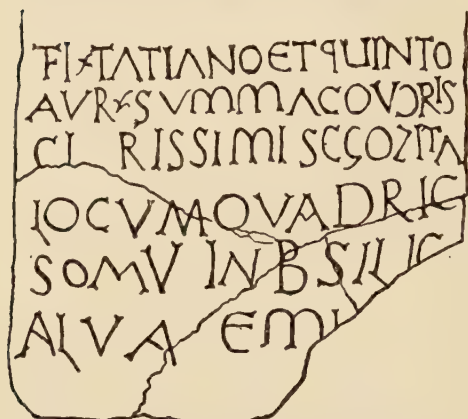 FL·TATIANOETQUINTO
AVR·SVMMACOVƆRIS
CL RISSIMI SCSCOZITA
LOCVMQVADRIC
SOMV IN BSILIC
ALVA EMI